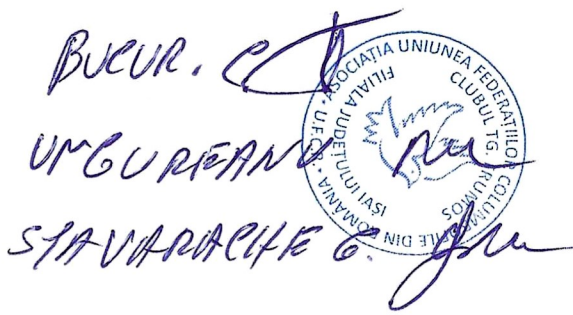 BUCUR. C
UNGUREANU
STAVARACHE G.
ASOCIAȚIA UNIUNEA FEDERAȚIILOR COLUMBOFILE DIN ROMÂNIA • U.F.C.R. •
FILIALA JUDEȚULUI IAȘI
CLUBUL TG. FRUMOS